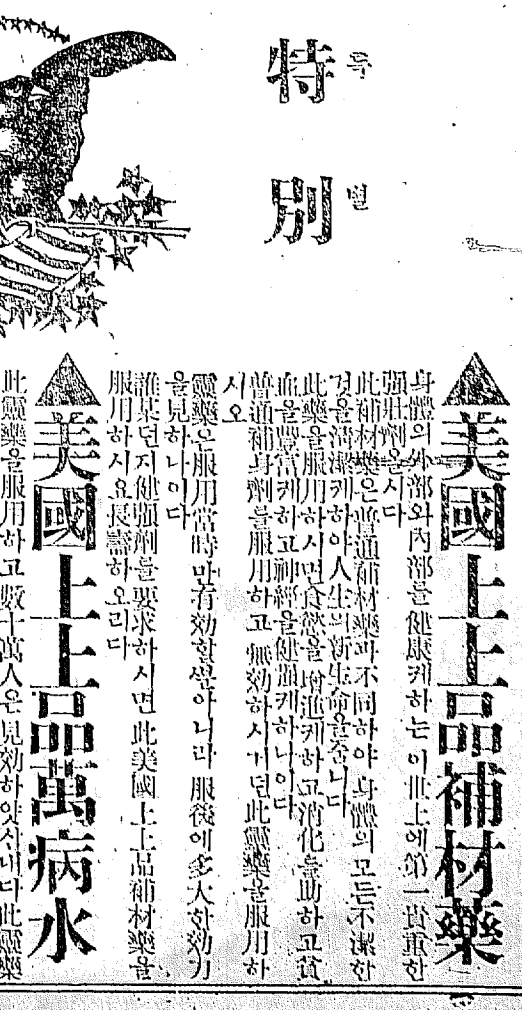 特別
특별
▲美國上上品補材藥
身體의外部와內部를健康케하는이世上에第一貴重한
强壯劑올시다
此補材藥은普通補材藥과不同하야身體의모든不潔한
것을淸潔케하야人生의新生命을줍니다
此藥을服用하시면食慾을增進케하고消化를助하고貧
血을豐富케하고神經을健强케하나이다
普通補身劑를服用하고無効하시거던此靈藥을服用하
시오
靈藥은服用當時만有効할ᄲᅮᆫ아니라服後에多大한効力
을見하나이다
誰某던지健强劑를要求하시면此美國上上品補材藥을
服用하시요長壽하오리다
▲美國上上品萬病水
此靈藥을服用하고數十萬人은見効하얏식내다此靈藥